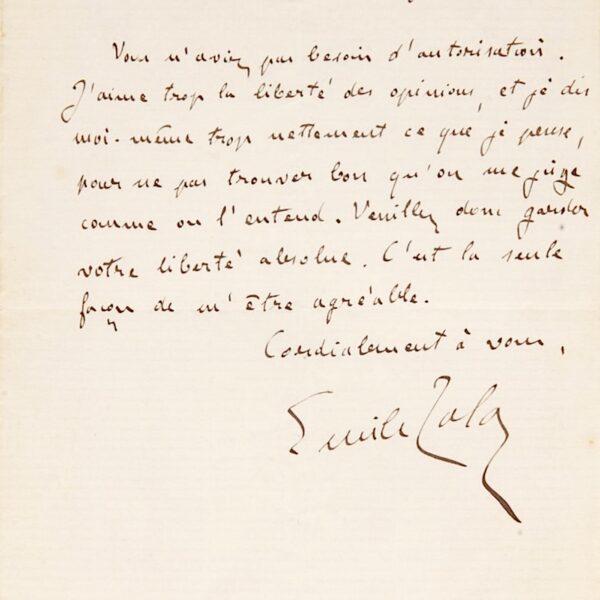 Vous n'aviez pas besoin d'autorisation.
J'aime trop la liberté des opinions, et je dis
moi-même trop nettement ce que je pense,
pour ne pas trouver bon qu'on me juge
comme on l'entend. Veuillez donc garder
votre liberté absolue. C'est la seule
façon de m'être agréable.
Cordialement à vous,
Emile Zola